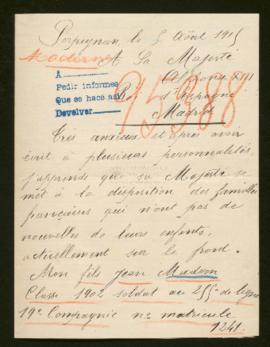 Perpignan, le 6 Août 1915
Madern
A Sa Majesté
Alfonso XIII
Roi d'Espagne
Madrid
A
Pedir informes
Que se hace así
Devolver
95368
Très anxieux et après avoir
écrit à plusieurs personnalités
j'apprends que sa Majesté se
met à la disposition des familles
françaises qui n'ont pas de
nouvelles de leurs enfants,
actuellement sur le front.
Mon fils Jean Madern
Classe 1902 soldat au 255e de ligne
19e Compagnie no matricule
1241.